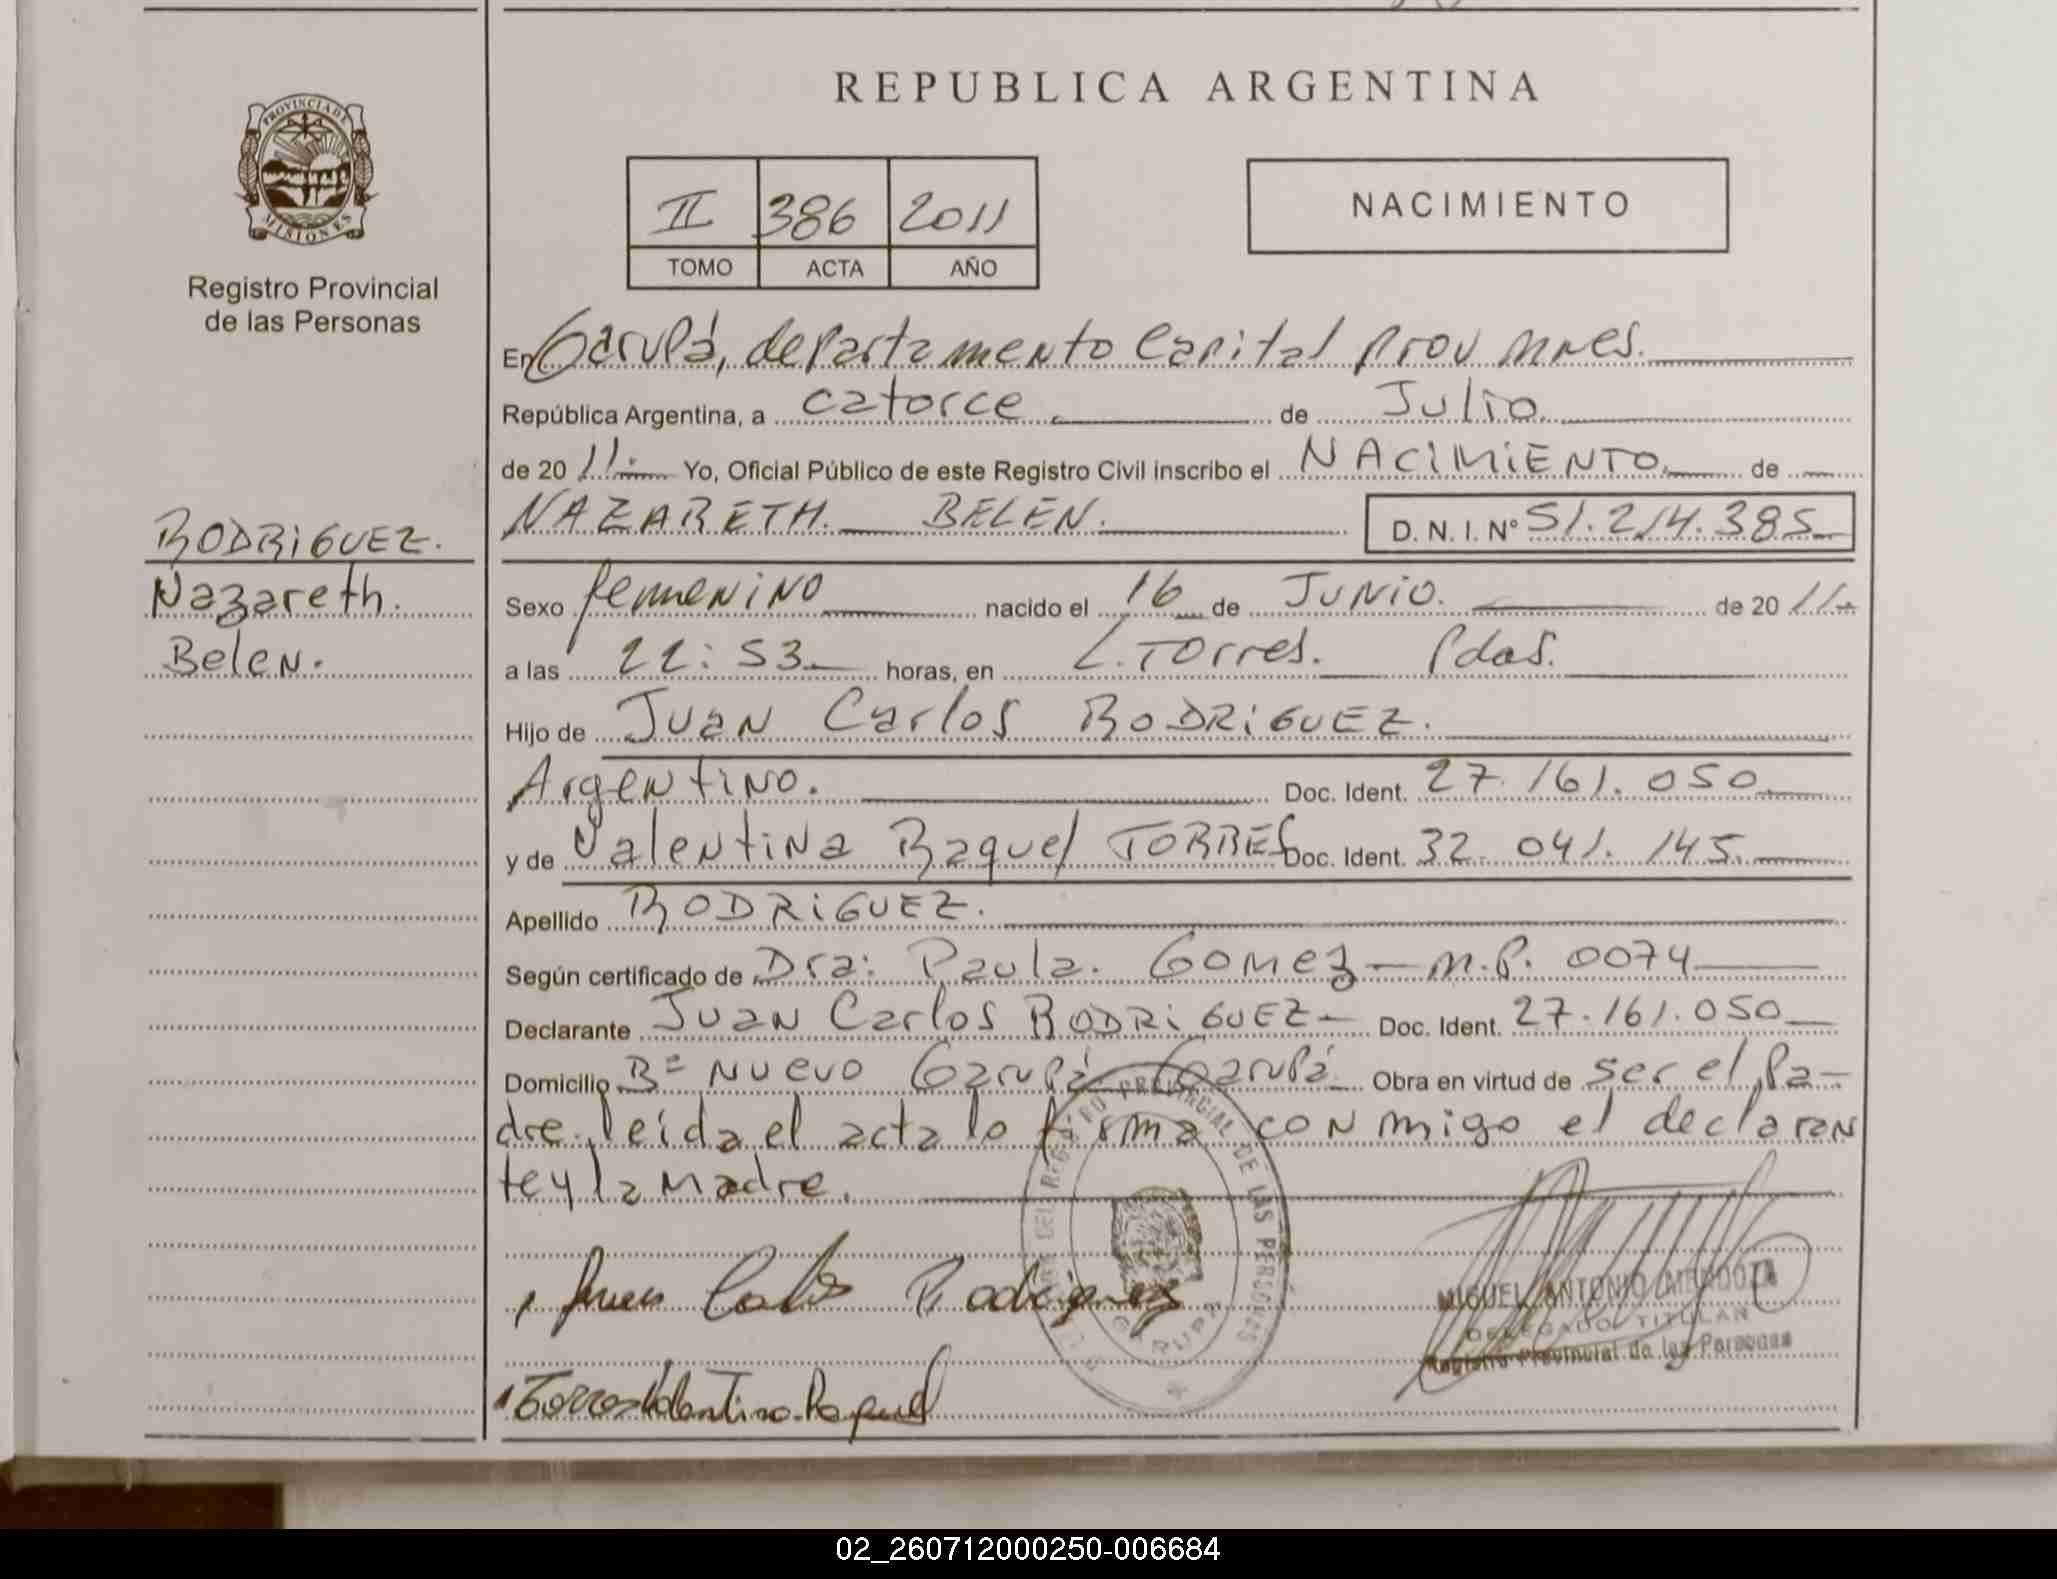 REPUBLICA ARGENTINA
PROVINCIA DE
MISIONES
Registro Provincial
de las Personas
II 386 2011
TOMO ACTA AÑO
NACIMIENTO
En Garupá, departamento Capital prov mnes.
República Argentina, a catorce. de Julio.
de 20 11.- Yo, Oficial Público de este Registro Civil inscribo el NACIMIENTO. de
NAZARETH. BELEN. D. N. I. Nº 51.214.385
RODRIGUEZ.
Nazareth.
Belen.
Sexo femenino nacido el 16 de JUNIO. de 20 11.-
a las 22: 53 horas, en L. Torres. Pdas.
Hijo de Juan Carlos RODRIGUEZ.
Argentino. Doc. Ident. 27.161.050
y de Valentina Raquel TORRES Doc. Ident. 32.041.145.
Apellido RODRIGUEZ.
Según certificado de Dra: Paula. Gomez - M.P. 0074
Declarante Juan Carlos RODRIGUEZ- Doc. Ident. 27.161.050
Domicilio Bº NUEVO Garupá - Garupá Obra en virtud de ser el Pa-
dre, leída el acta lo firma con migo el declaran
te y la madre.
REGISTRO PROVINCIAL DE LAS PERSONAS
GARUPA
Juan Carlos Rodriguez
MIGUEL ANTONIO MENDOZA
DELEGADO TITULAR
Registro Provincial de las Personas
Torres Valentina Raquel
02_260712000250-006684